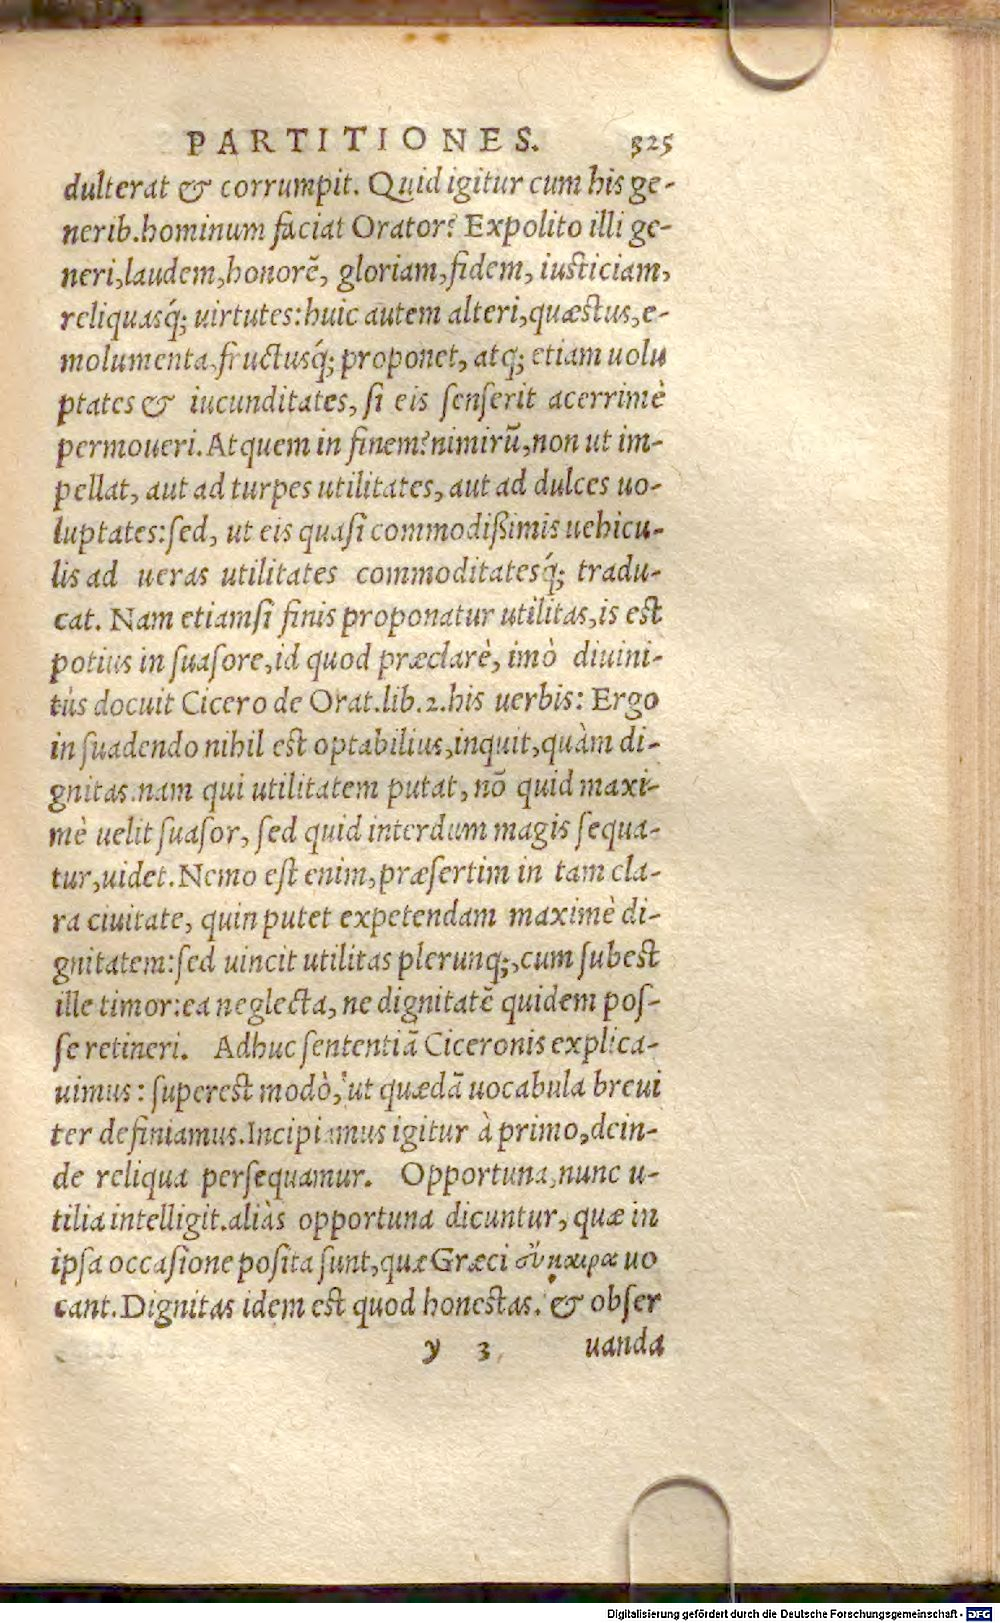 PARTITIONES. 325
dulterat & corrumpit. Quid igitur cum his ge-
nerib. hominum faciat Orator? Expolito illi ge-
neri, laudem, honorẽ, gloriam, fidem, iusticiam,
reliquasq́; uirtutes: huic autem alteri, quæstus, e-
molumenta, fructusq́; proponet, atq; etiam uolu
ptates & iucunditates, si eis senserit acerrimè
permoueri. At quem in finem? nimirũ, non ut im-
pellat, aut ad turpes utilitates, aut ad dulces uo-
luptates: sed, ut eis quasi commodißimis uehicu-
lis ad ueras utilitates commoditatesq́; tradu-
cat. Nam etiamsi finis proponatur utilitas, is est
potius in suasore, id quod præclarè, imò diuini-
tùs docuit Cicero de Orat. lib. 2. his uerbis: Ergo
in suadendo nihil est optabilius, inquit, quàm di-
gnitas. nam qui utilitatem putat, nõ quid maxi-
mè uelit suasor, sed quid interdum magis sequa-
tur, uidet. Nemo est enim, præsertim in tam cla-
ra ciuitate, quin putet expetendam maximè di-
gnitatem: sed uincit utilitas plerunq;, cum subest
ille timor: ea neglecta, ne dignitatẽ quidem pos-
se retineri. Adhuc sententiã Ciceronis explica-
uimus: superest modò, ut quædã uocabula breui
ter definiamus. Incipiamus igitur à primo, dein-
de reliqua persequamur. Opportuna, nunc u-
tilia intelligit. aliàs opportuna dicuntur, quæ in
ipsa occasione posita sunt, quæ Græci uo
cant. Dignitas idem est quod honestas. & obser
y 3 uanda
Digitalisierung gefördert durch die Deutsche Forschungsgemeinschaft - DFG